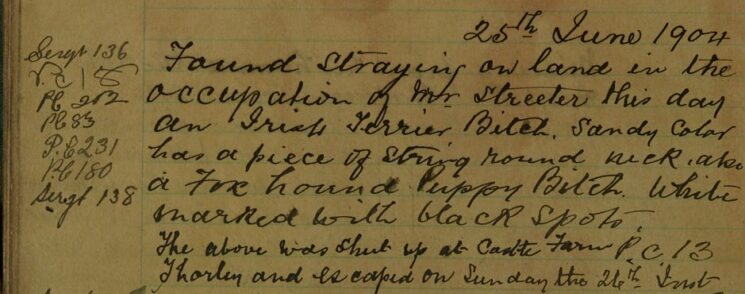 25th June 1904
Sergt 136
P.C 18
PC 202
PC 83
P.C 231
PC 180
Sergt 138
Found straying on land in the
occupation of Mr Streeter this day
an Irish Terrier Bitch. Sandy Color
has a piece of string round neck. also
a Fox hound Puppy Bitch. White
marked with black spots.
The above was shut up at Castle Farm P.C. 13
Thorley and escaped on Sunday the 26th Inst